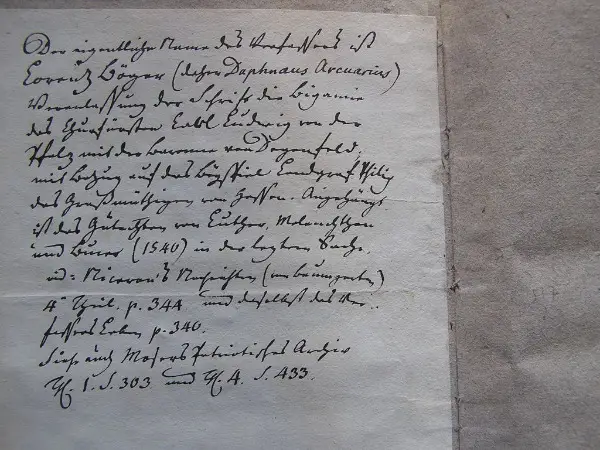 Der eigentliche Name des Verfassers ist
Lorentz Böger (daher Daphnaus Arcuarius)
Veranlassung der Schrift die Bigamie
des Churfürsten Carl Ludwig von der
Pfalz mit der Baronne von Degenfeld,
mit Bezug auf das Beyspiel Landgraf Philip
des Großmüthigen von Hessen. Angehängt
ist das Gutachten von Luther, Melanchthon
und Bucer (1540) in der letzten Sache.
vid: Niceron's Nachrichten (von Baumgarten)
4r Theil. p. 344 und daselbst des Ver-
fassers Leben p. 340.
Siehe auch Mosers Patriotisches Archiv
Th. 1. S. 303 und Th. 4. S. 433.